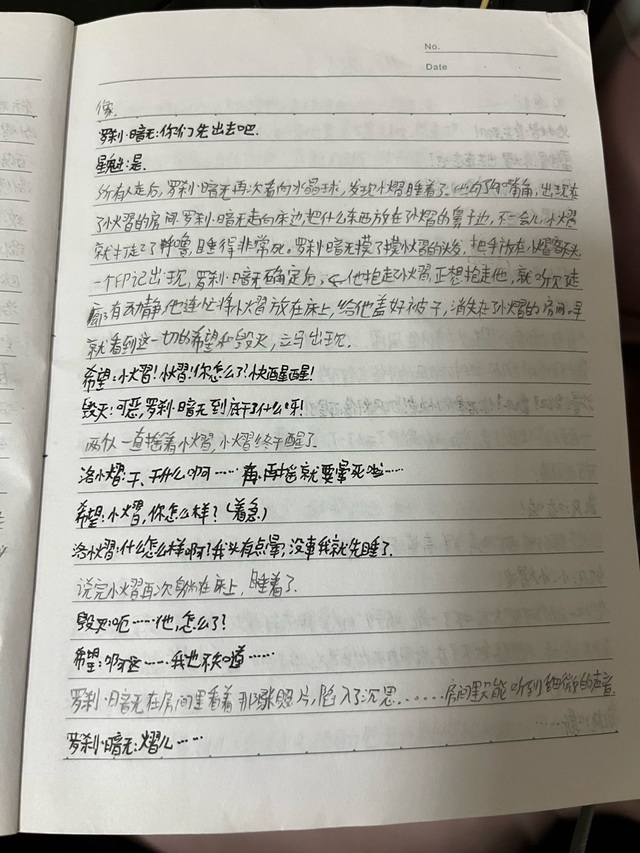 No.
Date
像.
罗刹·暗无:你们先出去吧.
星魁:是.
所有人走后,罗刹·暗无再次看向水晶球,发现小熠睡着了.他勾了勾嘴角,出现在
了小熠的房间.罗刹·暗无走向床边,把什么东西放在了小熠的鼻子边,不一会儿,小熠
就打起了呼噜,睡得非常死。罗刹·暗无摸了摸小熠的头发,把手放在小熠额头
一个印记出现,罗刹·暗无确定后,他抱起了小熠,正想抱走他,就听见走
廊有动静,他连忙将小熠放在床上,给他盖好被子,消失在了小熠的房间.早
就看到这一切的希望和毁灭,立马出现.
希望:小熠!小熠!你怎么了?!快醒醒!
毁灭:可恶,罗刹·暗无到底干了什么呀!
两伙一直摇着小熠,小熠终于醒了.
洛小熠:干、干什么啊……再再摇就要晕死啦……
希望:小熠,你怎么样?(着急)
洛小熠:什么怎么样啊?我头有点晕,没事我就先睡了.
说完小熠再次躺在床上,睡着了.
毁灭:呃……他,怎么了?
希望:啊这……我也不知道……
罗刹·暗无在房间里看着那张照片,陷入了沉思......房间里只能听到细微的声音.
罗刹·暗无:熠儿……